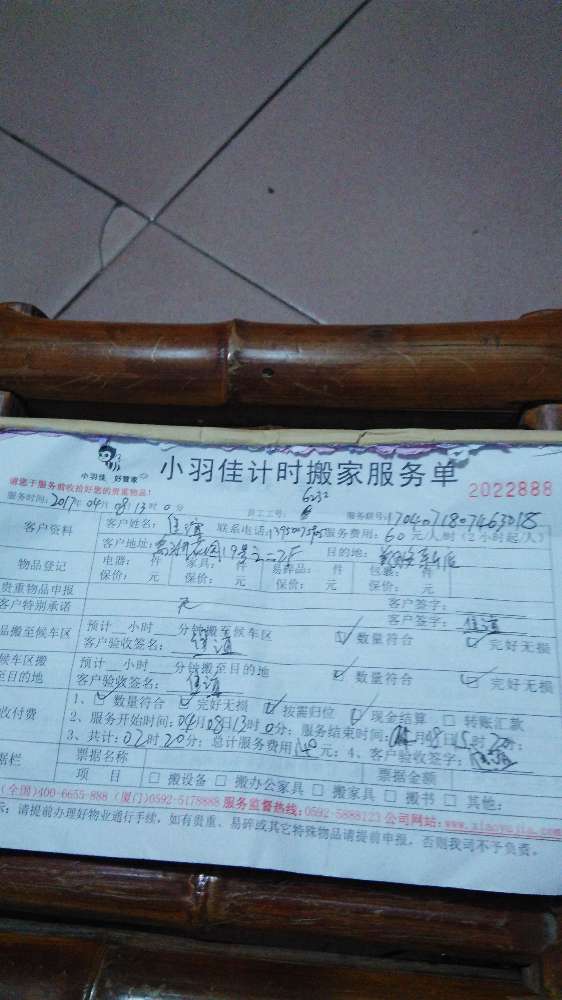 小羽佳 好管家
小羽佳计时搬家服务单
请您于服务前收拾好您的贵重物品！
2022888
服务时间：2017年04月08日13时0分 员工工号：6232 服务联号：
客户资料 客户姓名： 联系电话： 服务费用：60元/人/时（2小时起/人）
客户地址： 19号之二2F 目的地：
物品登记 电器： 件 家具： 件 易碎品： 件 包裹： 件
保价： 元 保价： 元 保价： 元 保价： 元
贵重物品申报 客户签字：
客户特别承诺 无 客户签字：
品搬至候车区 预计 小时 分钟搬至候车区 ☑ 数量符合 ☑ 完好无损
客户验收签名：
候车区搬至目的地 预计 小时 分钟搬至目的地 ☑ 数量符合 ☑ 完好无损
客户验收签名：
收付费 1、☑ 数量符合 ☑ 完好无损 ☑ 按需归位 ☑ 现金结算 □ 转账汇款
2、服务开始时间：04月08日13时0分；服务结束时间：04月08日15时20分；
3、共计：02时20分；总计服务费用 元；4、客户验收签字：
据栏 票据名称 票据金额
项 目 □ 搬设备 □ 搬办公家具 □ 搬家具 □ 搬书 □ 其他：
(全国)400-6655-888 (厦门)0592-5178888 服务监督热线：0592-5888123 公司网站：www.xiaoyujia.com
示：请提前办理好物业通行手续，如有贵重、易碎或其它特殊物品请提前申报，否则我司不予负责。